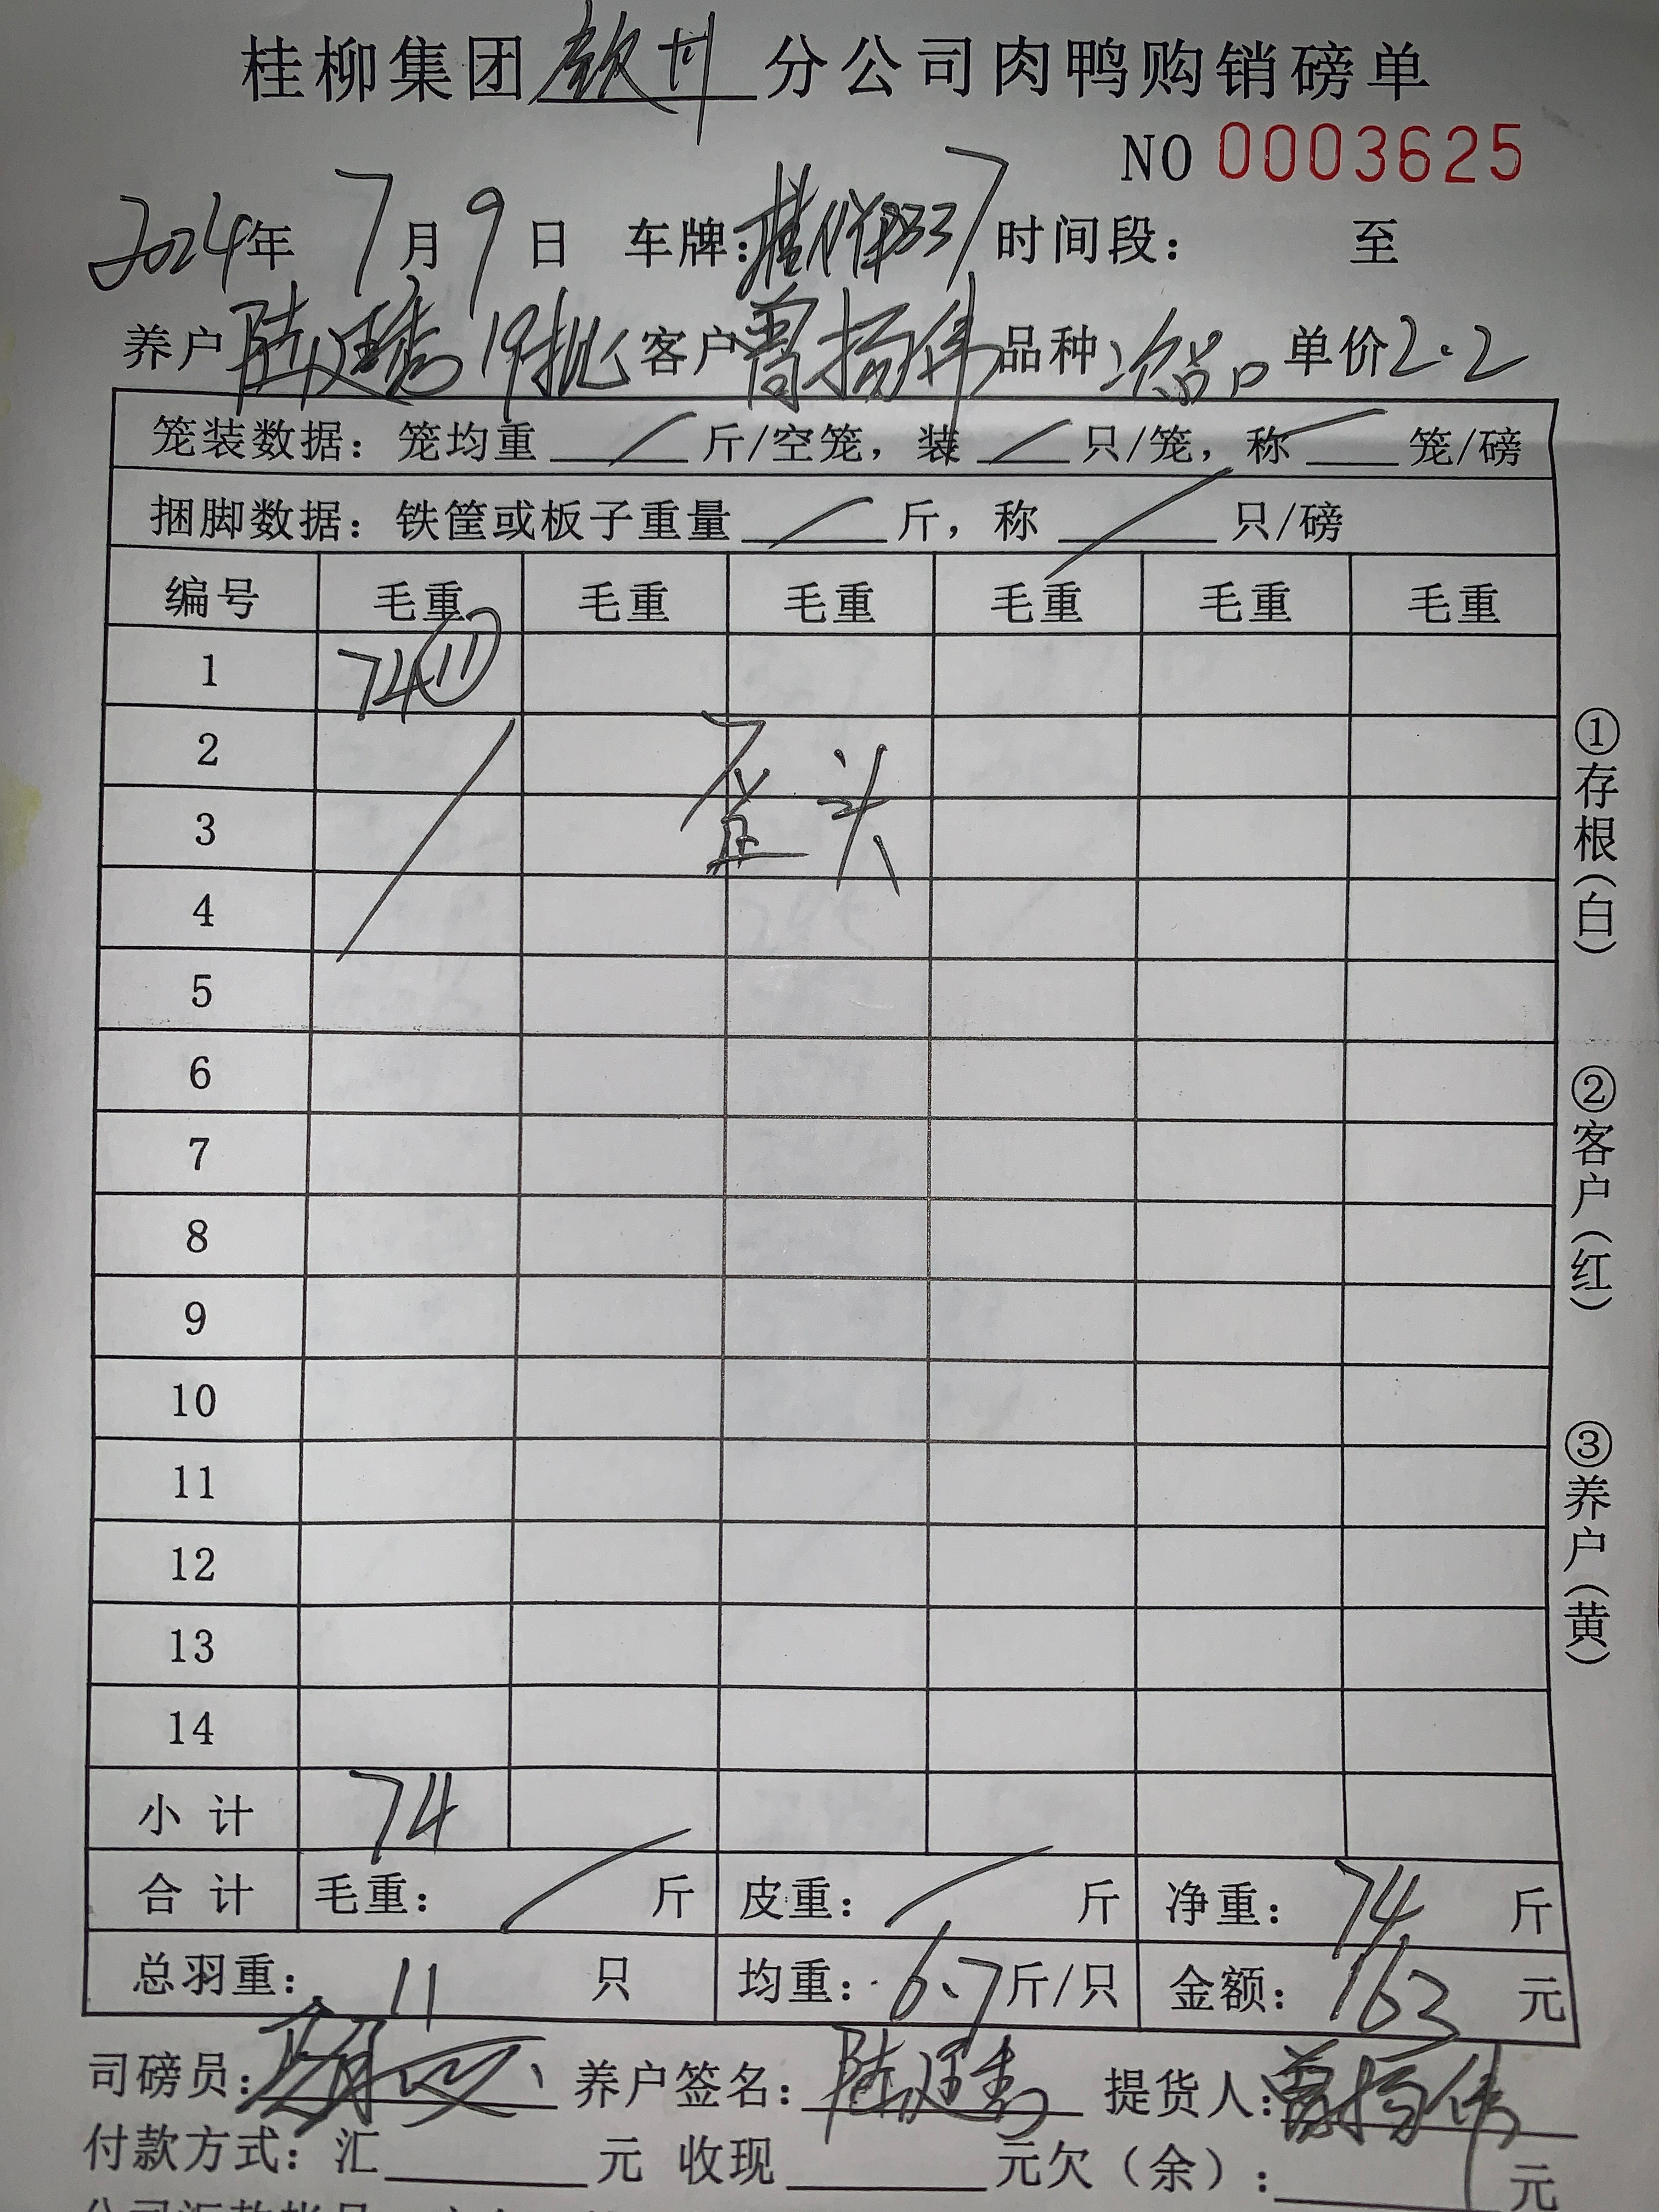 桂柳集团钦州分公司肉鸭购销磅单
NO 0003625
2024年7月9日 车牌: 时间段: 至
养户 陆廷秀 19批 客户 曾扬伟 品种 次品 单价 2.2
笼装数据: 笼均重 / 斤/空笼, 装 / 只/笼, 称 / 笼/磅
捆脚数据: 铁筐或板子重量 / 斤, 称 / 只/磅
编号 毛重 毛重 毛重 毛重 毛重 毛重
1 74⑪
2
歪头
3
4
5
6
7
8
9
10
11
12
13
14
小计 74
合计 毛重: / 斤 皮重: / 斤 净重: 74 斤
总羽重: 11 只 均重: 6.7 斤/只 金额: 163 元
司磅员: 养户签名: 陆廷秀 提货人: 曾扬伟
付款方式: 汇 元 收现 元欠(余): 元
①存根(白)
②客户(红)
③养户(黄)